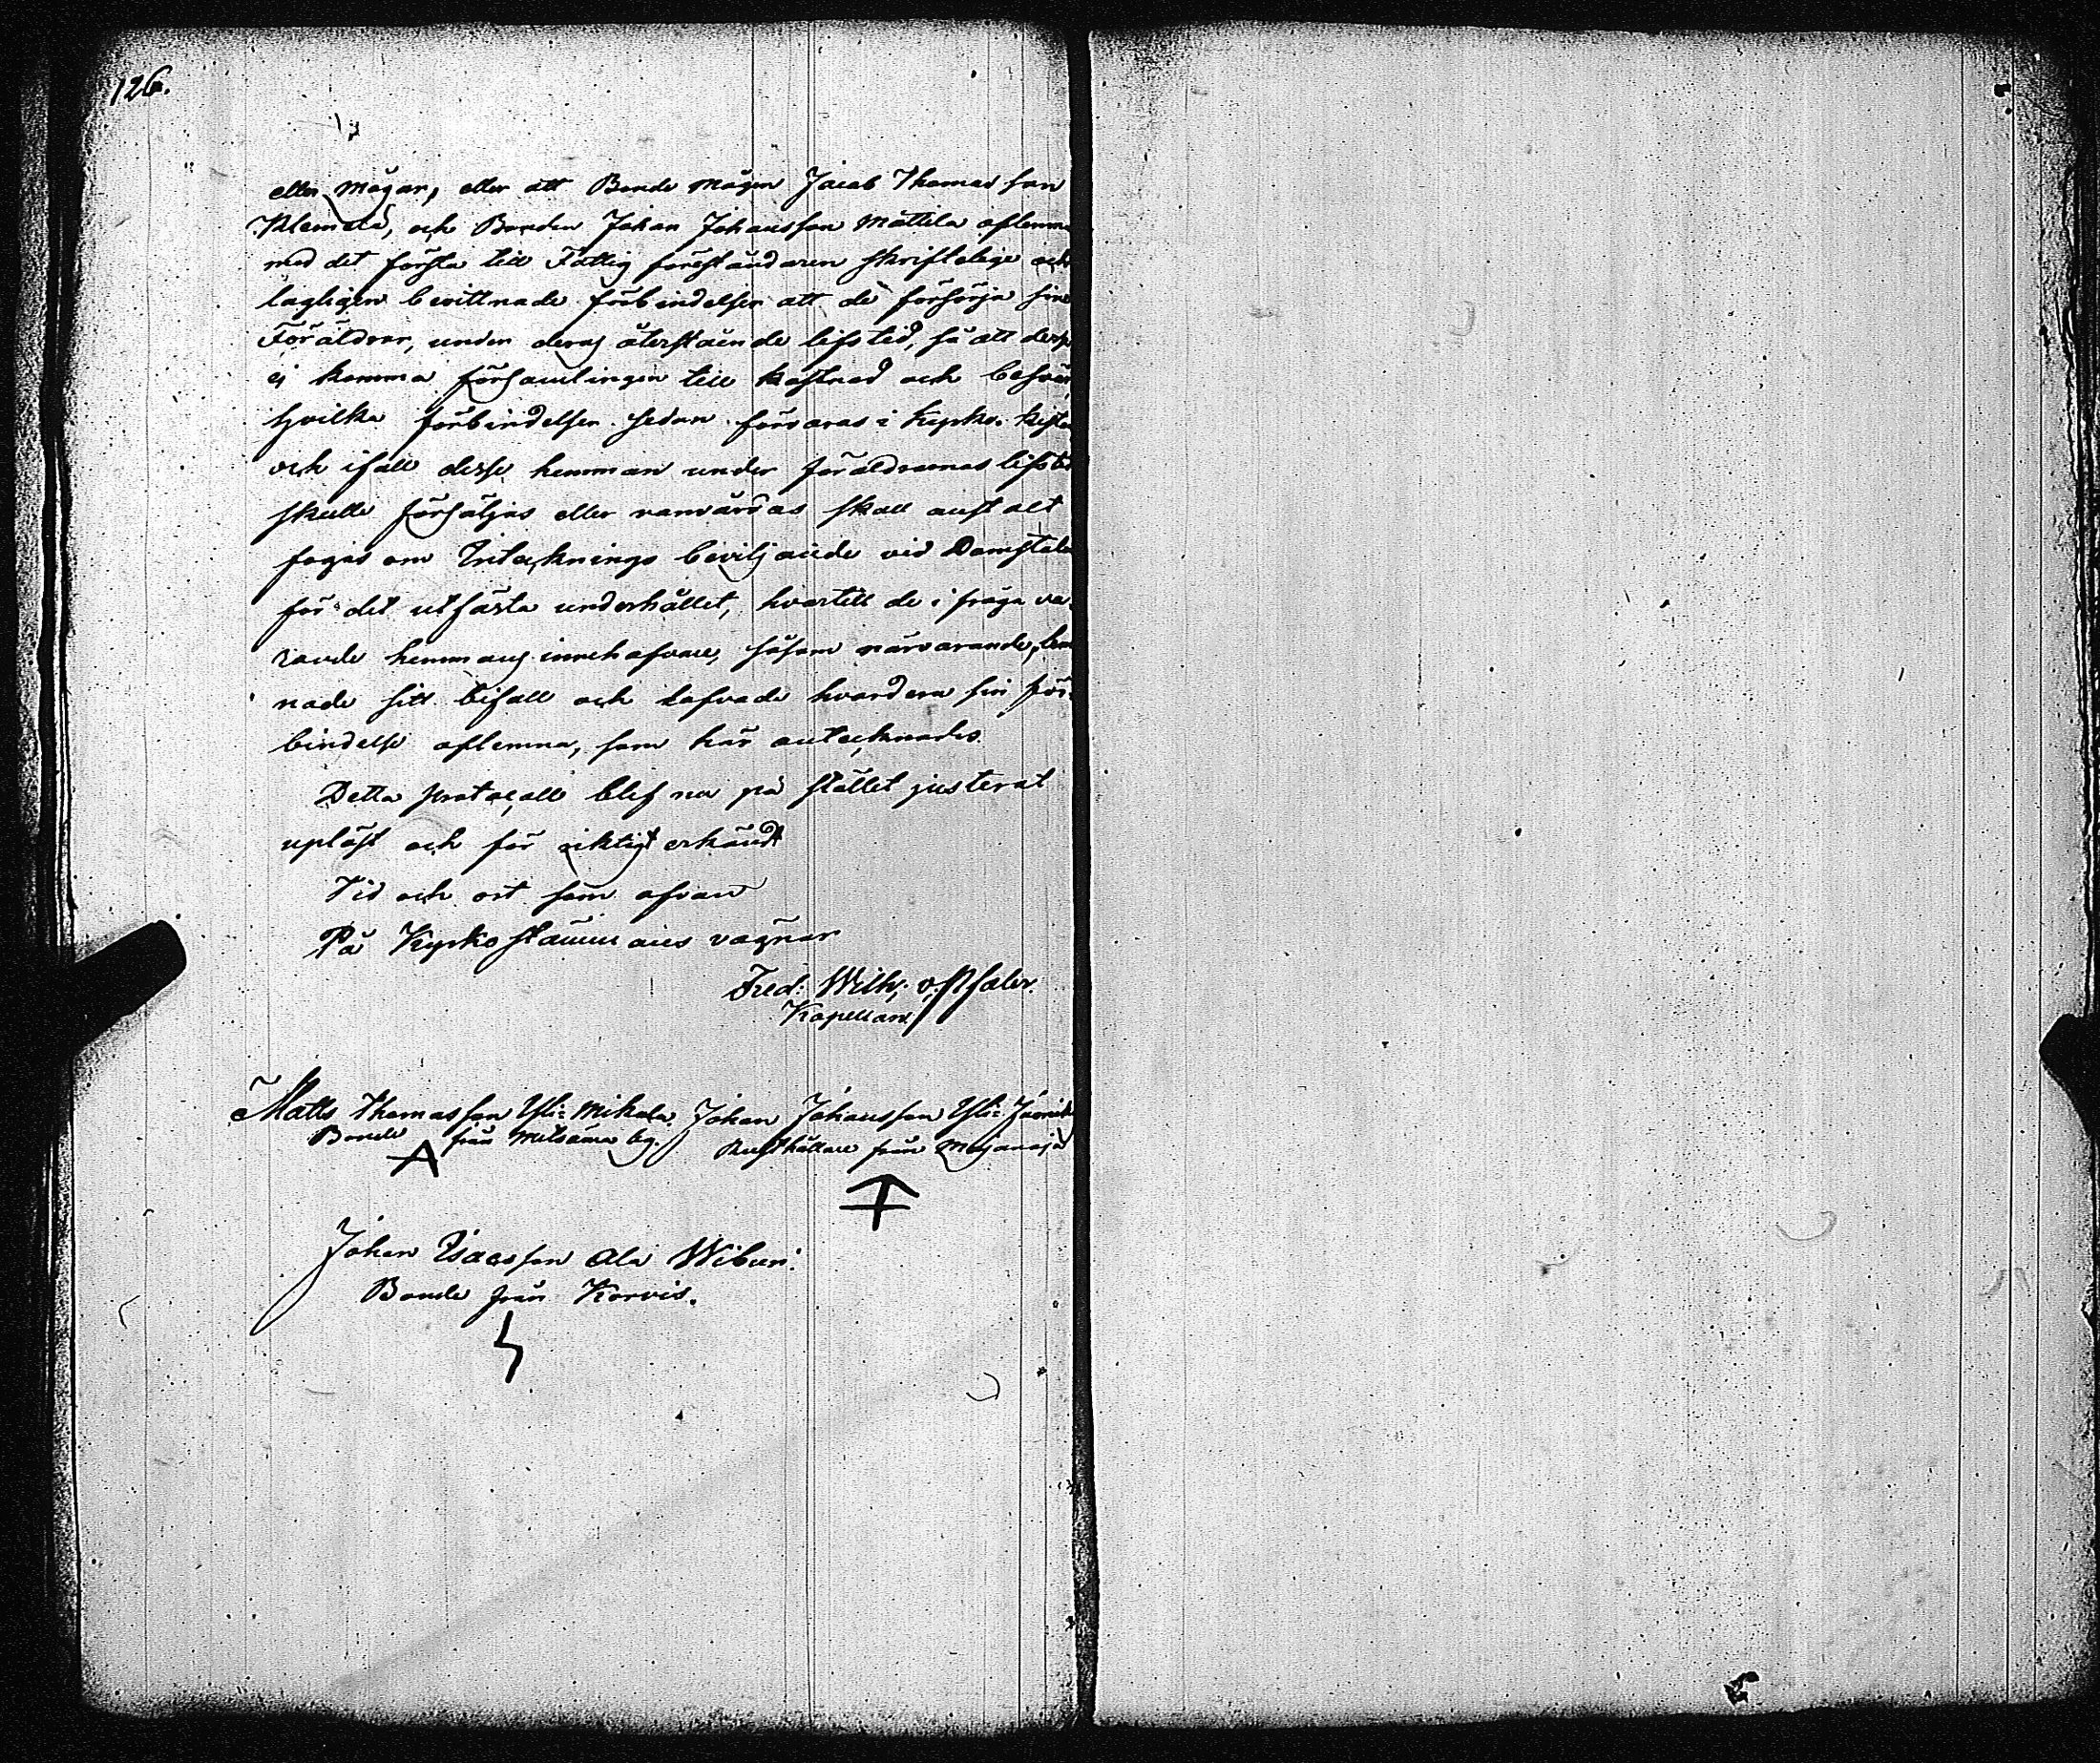 126.
eller mågar, eller att Bonde mågen Jacob Thomasson
Klemola, och Bonden Johan Johansson Mattila aflemna
med det första till Fattig föreståndaren skriftelige och
lagligen bevittnade förbindelser att de försörja sina
Föräldrar, under deras återstående lifstid, så att desse
ej komma församlingen till kostnad och besvär
hvilka förbindelser sedan förvaras i Kyrko-kistan
och ifall desse hemman under föräldrarnas lifstid
skulle försäljas eller vanvårdas skall anstalt
fogas om Intecknings beviljande vid Domstolen
för det utfästa underhållet, hvartill de i fråga va-
rande hemmans innehafvare, såsom närvarande, lem
nade sitt bifall och lofvade hvardera sin för-
bindelse aflemna, som här antecknades.
Detta protocoll blef nu på stället justerat
upläst och för riktigt erkändt
Tid och ort som ofvan
På Kyrkostämmans vägnar
Fred: Wilh:
Kapellan
Matts Thomasson Yli=Mikola. Johan Johansson Yli=
Bonde från by. Rusthållare från
Johan Isacsson Ala Wiburi.
Bonde från Korvis.